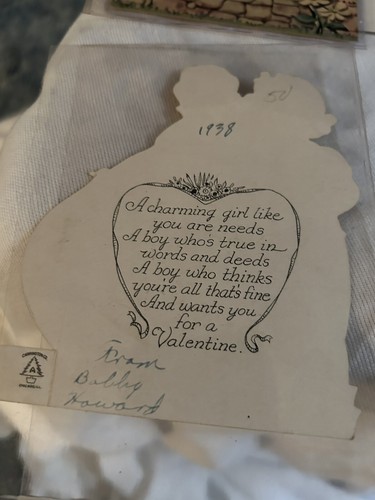 50
1938
A charming girl like
you are needs
A boy who's true in
words and deeds
A boy who thinks
you're all that's fine
And wants you
for a
Valentine.
From
Bobby
Howard
A